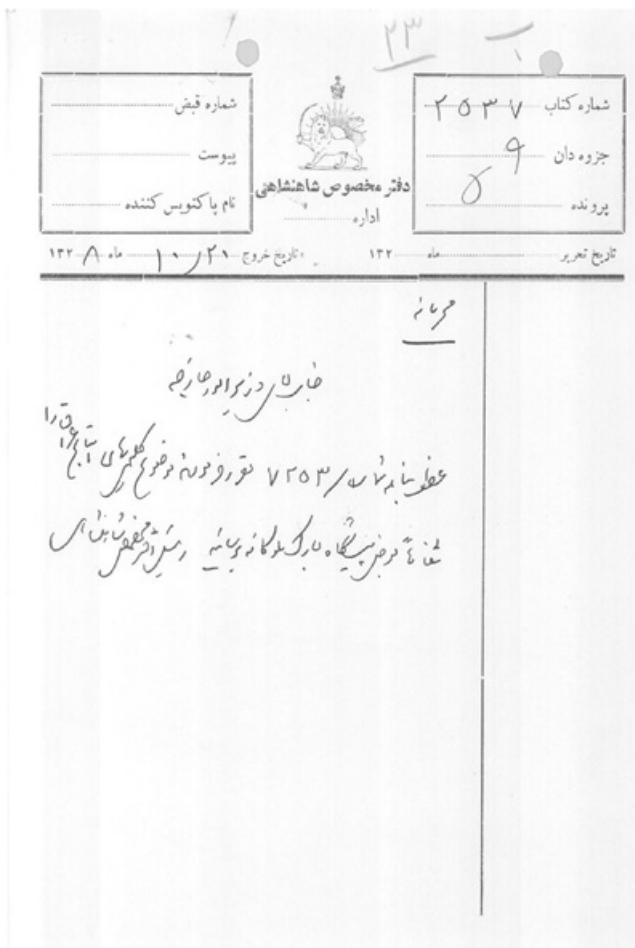 ۲۳
شماره کتاب ۲۵۳۷
جزوه دان ۹
پرونده ۵
دفتر مخصوص شاهنشاهی
اداره
شماره قبض
پیوست
نام پاکنویس کننده
تاریخ تحریر ماه ۱۳۲
تاریخ خروج ۱۰/۲۱ ماه ۱۳۲۸
محرمانه
جناب آقای وزیر امور خارجه
عطف بنامه شماره ۷۲۵۳ مقرر فرمودند موضوع
شفاهاً بعرض پیشگاه مبارک ملوکانه برسانید رئیس دفتر مخصوص شاهنشاهی